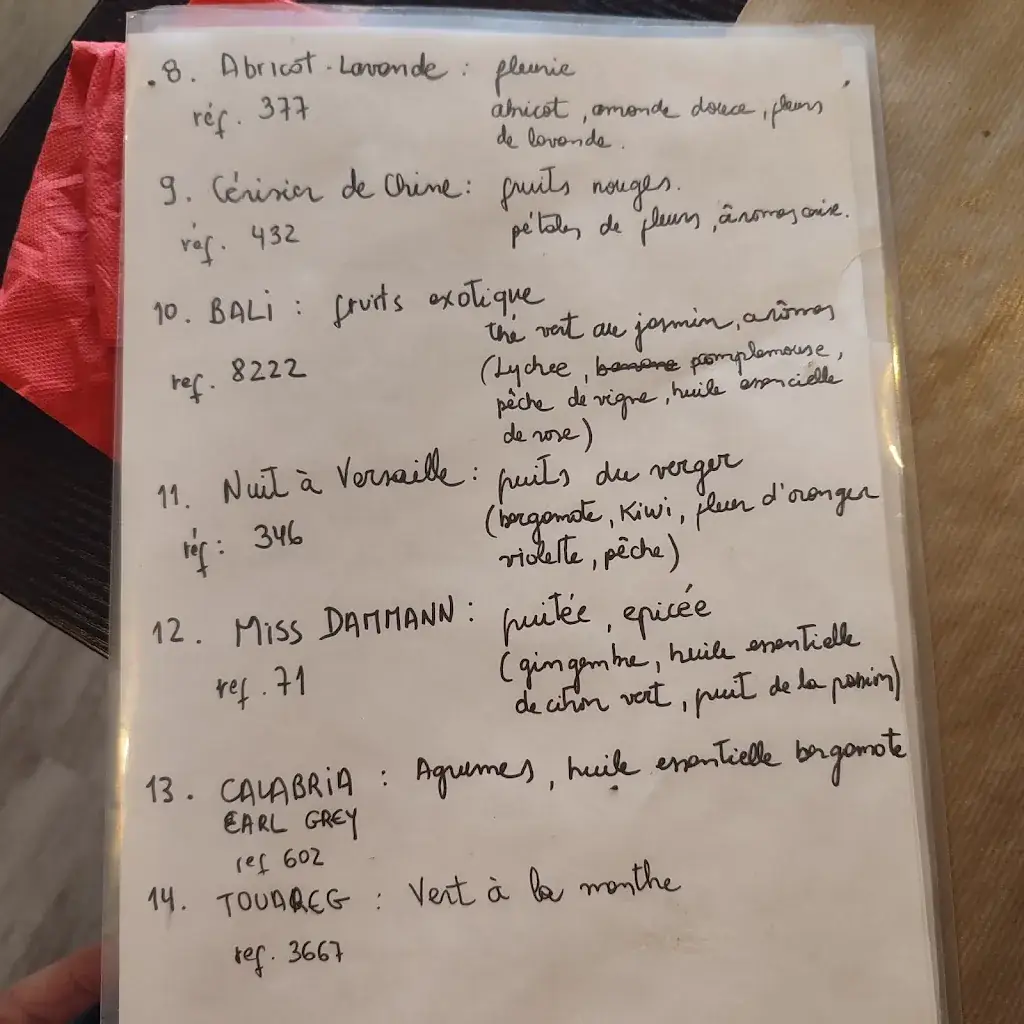 8. Abricot-Lavande : fleurie
réf. 377 abricot, amande douce, fleurs
de lavande.
9. Cérisier de Chine : fruits rouges.
réf. 432 pétales de fleurs, arômes
10. BALI : fruits exotique
thé vert au jasmin, arômes
ref. 8222 (Lychee, pamplemousse,
pêche de vigne, huile essencielle
de rose)
11. Nuit à Versaille : fruits du verger
réf : 346 (bergamote, Kiwi, fleur d'oranger
violette, pêche)
12. Miss DAMMANN : fruitée, epicée
ref. 71 (gingembre, huile essentielle
de citron vert, fruit de la passion)
13. CALABRIA : Agrumes, huile essentielle bergamote
EARL GREY
ref 602
14. TOUAREG : Vert à la menthe
ref. 3667